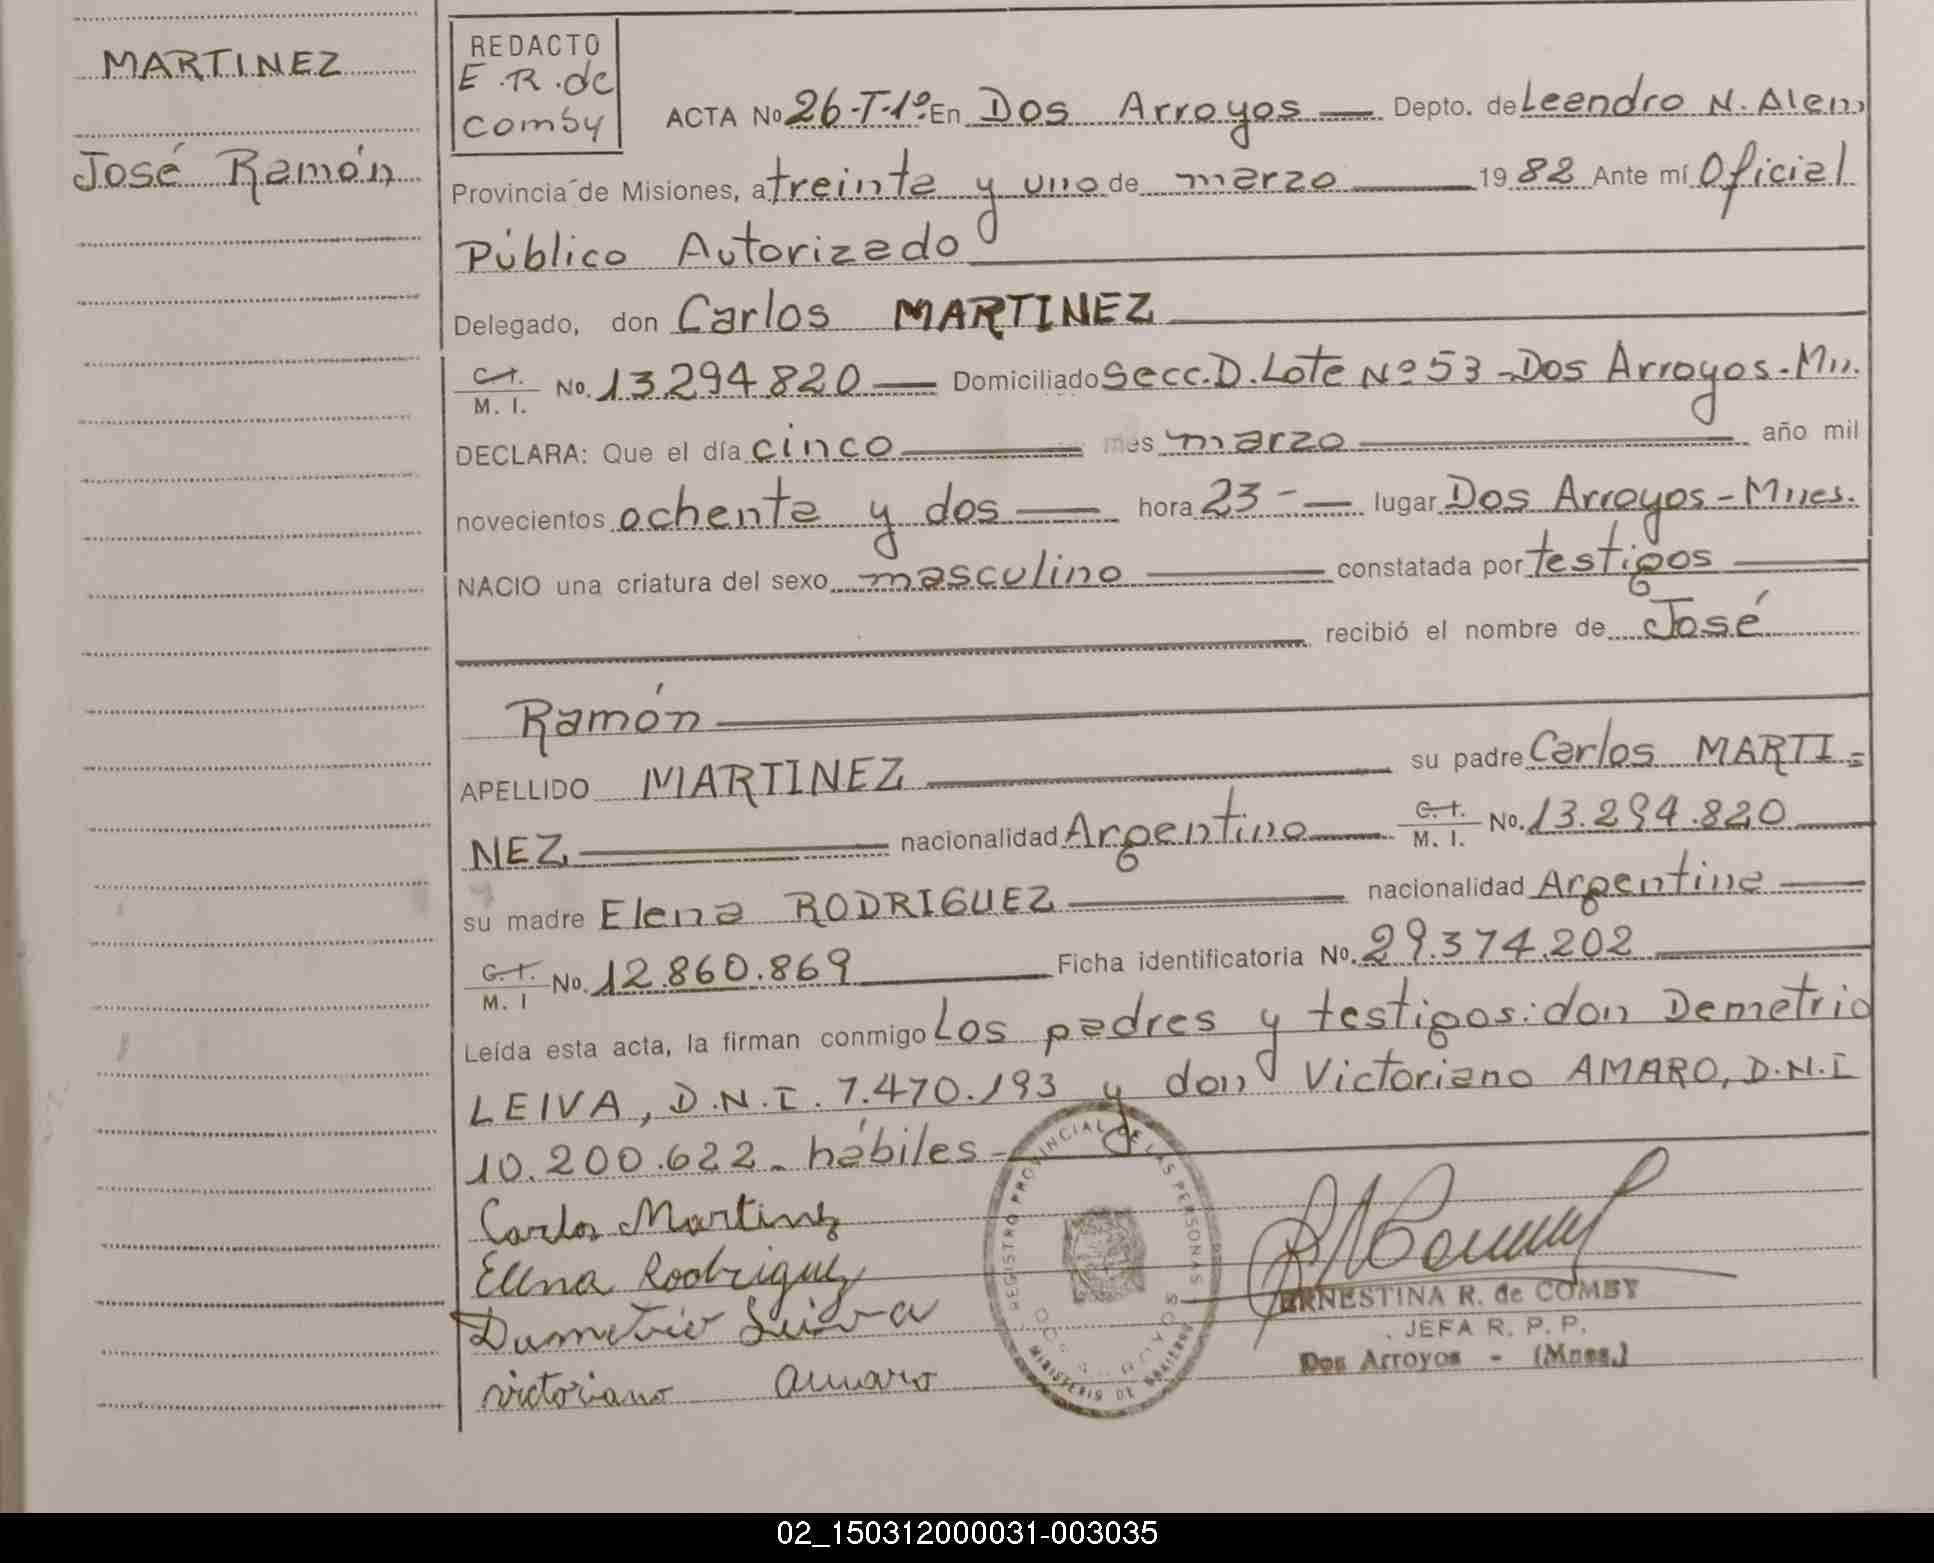 MARTINEZ
José Ramón
REDACTO
E.R.de
Comby
ACTA No 26-T-1º En Dos Arroyos — Depto. de Leandro N. Alem
Provincia de Misiones, a treinta y uno de marzo — 1982 Ante mí Oficial
Público Autorizado
Delegado, don Carlos MARTINEZ
C.I. / M. I. No. 13.294.820 — Domiciliado Secc.D. Lote Nº 53 - Dos Arroyos - Mn.
DECLARA: Que el día cinco — mes marzo — año mil
novecientos ochenta y dos — hora 23 - — lugar Dos Arroyos - Mnes.
NACIO una criatura del sexo masculino — constatada por testigos —
recibió el nombre de José
Ramón
APELLIDO MARTINEZ — su padre Carlos MARTI=
NEZ — nacionalidad Argentino — C.I. / M. I. No. 13.294.820
su madre Elena RODRIGUEZ — nacionalidad Argentina —
C.I. / M. I No. 12.860.869 — Ficha identificatoria No. 29.374.202 —
Leída esta acta, la firman conmigo Los padres y testigos: don Demetrio
LEIVA, D.N.I. 7.470.193 y don Victoriano AMARO, D.N.I
10.200.622 - hábiles -
Carlos Martinez
Elena Rodriguez
Demetrio Leiva
victoriano amaro
REGISTRO PROVINCIAL DE LAS PERSONAS
DOS ARROYOS
MINISTERIO DE GOBIERNO
ERNESTINA R. de COMBY
JEFA R. P. P.
Dos Arroyos - (Mnes.)
02_150312000031-003035